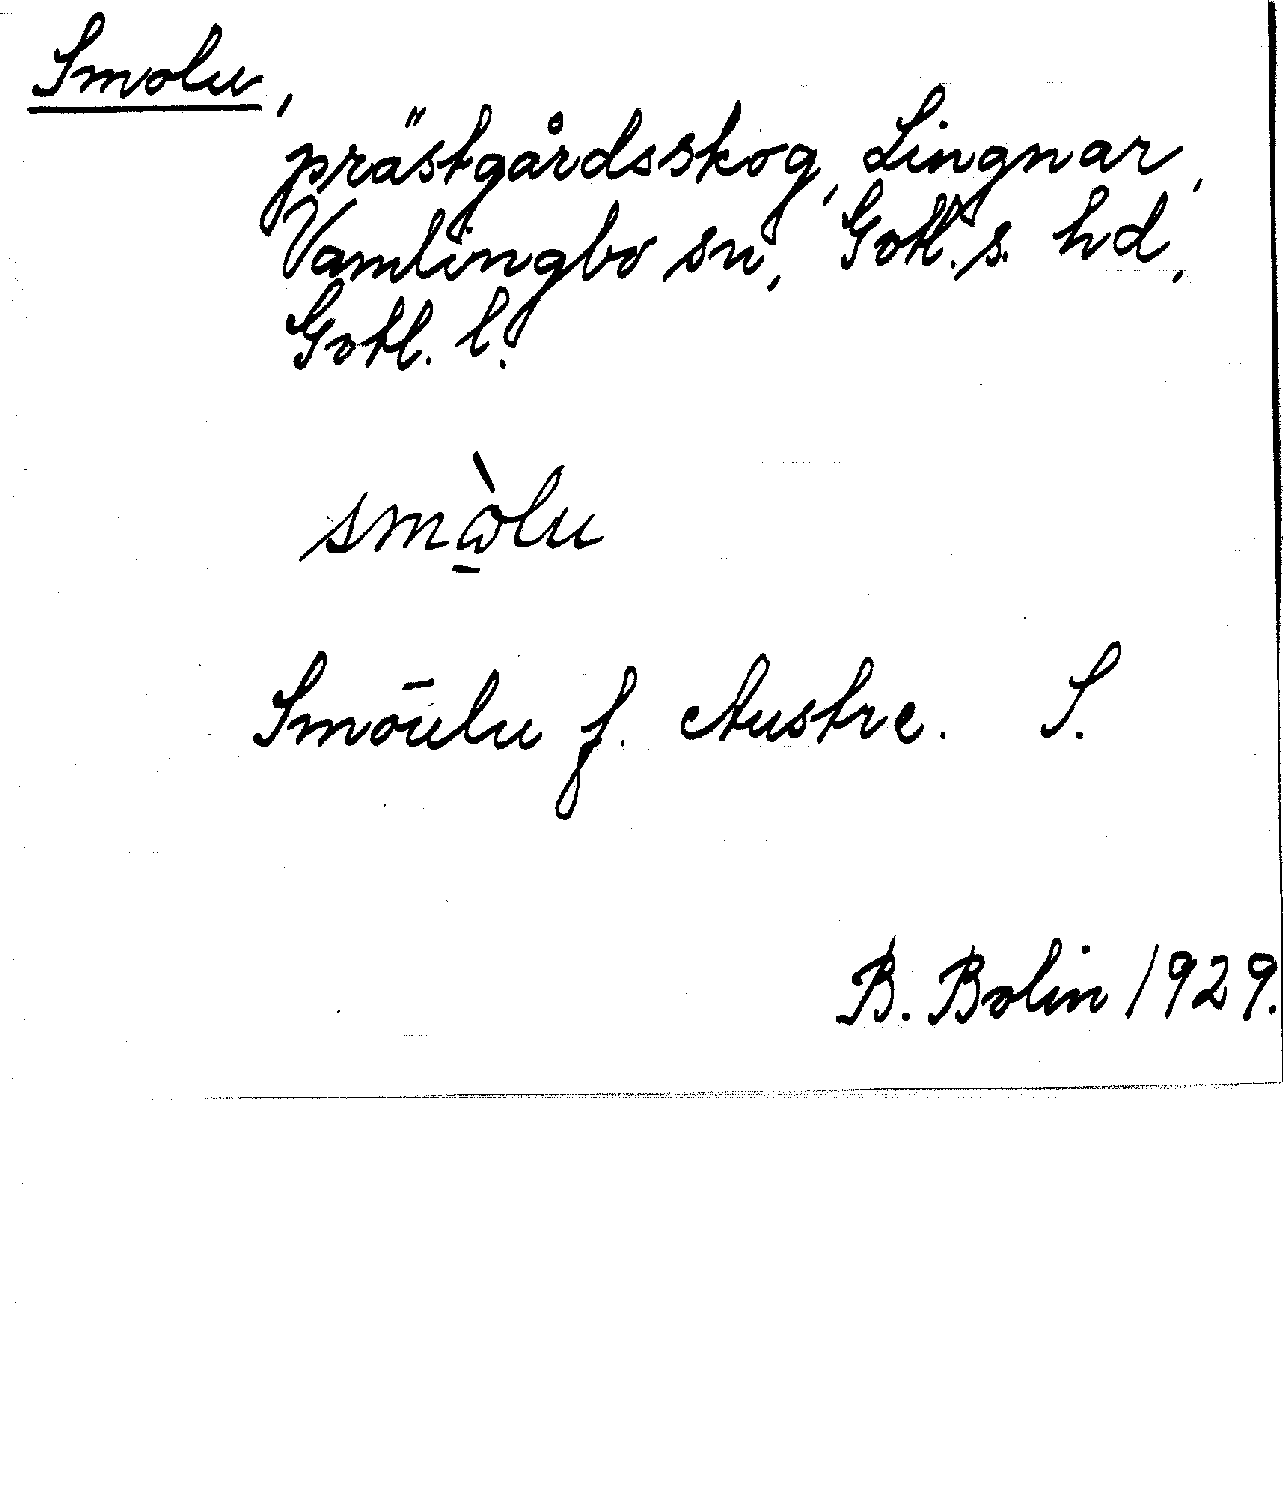 Smolu,
prästgårdsskog, Lingnar,
Vamlingbo sn, Gotl. s. hd,
Gotl. l.
smὼ̱lu
Smōulu f. Austre. S.
B. Bolin 1929.